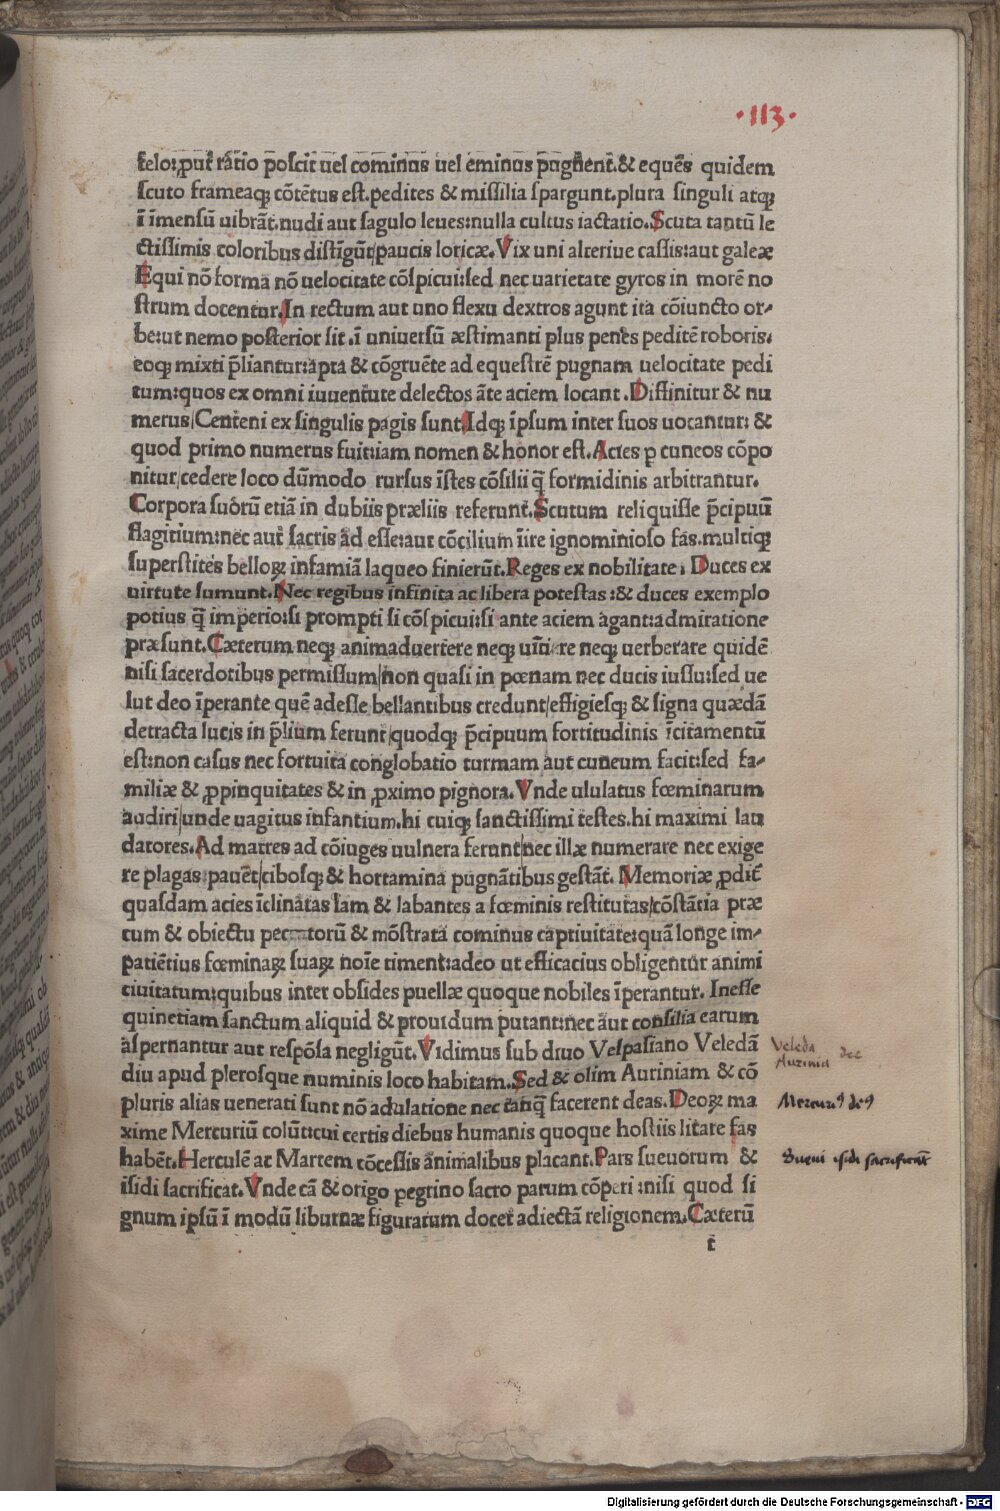 ·113·
telo: ꝓut̃ rãtio poſcit uel cominus uel eminus pugñent. & eques quidem
ſcuto frameaqꝫ cõtẽtus eſt. pedites & miſſilia ſpargunt. plura ſinguli atqꝫ
ĩ ĩmenſũ uibrãt. nudi aut ſagulo leues: nulla cultus iactatio. Scuta tantũ le
ctiſſimis coloribus diſtĩgũt/paucis loricæ. Vix uni alteriue caſſis: aut galeæ
Equi nõ forma nõ uelocitate cõſpicui: ſed nec uarietate gyros in morẽ no
ſtrum docentur. In rectum aut uno flexu dextros agunt ita cõiuncto or-
be: ut nemo poſterior ſit. ĩ uniuerſũ æſtimanti plus penes peditẽ roboris.
eoqꝫ mixti p̃liantur: apta & cõgruẽte ad equeſtrẽ pugnam uelocitate pedi
tum: quos ex omni iuuentute delectos ãte aciem locant. Diffinitur & nu
merus/Centeni ex ſingulis pagis ſunt. Idqꝫ ĩpſum inter ſuos uocantur: &
quod primo numerus fuit: iam nomen & honor eſt. Acies p cuneos cõpo
nitur/cedere loco dũmodo rurſus ĩſtes cõſilii q̃ formidinis arbitrantur.
Corpora ſuorũ etiã in dubiis præliis referunt. Scutum reliquiſſe p̃cipuũ
flagitium: nec aut ſacris ad eſſe: aut cõcilium ĩire ignominioſo fas. multiqꝫ
ſuperſtites belloꝝ infamiã laqueo finierũt. Reges ex nobilitate. Duces ex
uirtute ſumunt. Nec regibus infinita ac libera poteſtas: & duces exemplo
potius q̃ imperio: ſi prompti ſi cõſpicui: ſi ante aciem agant: admiratione
præſunt. Cæterum neqꝫ animaduertere neqꝫ uĩcire neqꝫ uerberare quidẽ
niſi ſacerdotibus permiſſum/non quaſi in pœnam nec ducis iuſſu: ſed ue
lut deo ĩperante quẽ adeſſe bellantibus credunt/effigieſqꝫ & ſigna quædã
detracta lucis in p̃lium ferunt/quodqꝫ p̃cipuum fortitudinis ĩcitamentũ
eſt: non caſus nec fortuita conglobatio turmam aut cuneum facit: ſed fa-
miliæ & ꝓpinquitates & in ꝓximo pignora. Vnde ululatus fœminarum
audiri/unde uagitus infantium. hi cuiqꝫ ſanctiſſimi teſtes. hi maximi lau
datores. Ad matres ad cõiuges uulnera ferunt/nec illæ numerare nec exige
re plagas pauẽt/ciboſqꝫ & hortamina pugnãtibus geſtãt. Memoriæ ꝓdit̃
quaſdam acies ĩclinatas iam & labantes a fœminis reſtitutas/cõſtãtia præ
cum & obiectu pectorũ & mõſtrata cominus captiuitate: quã longe im-
patiẽtius fœminaꝝ ſuaꝝ noĩe timent: adeo ut efficacius obligentur animi
ciuitatum: quibus inter obſides puellæ quoque nobiles ĩperantur. Ineſſe
quinetiam ſanctum aliquid & prouidum putant: nec aut conſilia earum
aſpernantur aut reſpõſa negligũt. Vidimus ſub diuo Veſpaſiano Veledã
diu apud pleroſque numinis loco habitam. Sed & olim Auriniam & cõ
pluris alias uenerati ſunt nõ adulatione nec tãq̃ facerent deas. Deoꝝ ma
xime Mercuriũ colũt: cui certis diebus humanis quoque hoſtiis litare fas
habẽt. Herculẽ ac Martem cõceſſis animalibus placant. Pars ſueuorum &
iſidi ſacrificat. Vnde cã & origo pegrino ſacro parum cõperi: niſi quod ſi
gnum ipſũ ĩ modũ liburnæ figuratum docet adiectã religionem. Cæterũ
t
Veleda
Aurinia deę
Mercuriꝰ deꝰ
Sueui iſidi ſacrificant
Digitalisierung gefördert durch die Deutsche Forschungsgemeinschaft - DFG